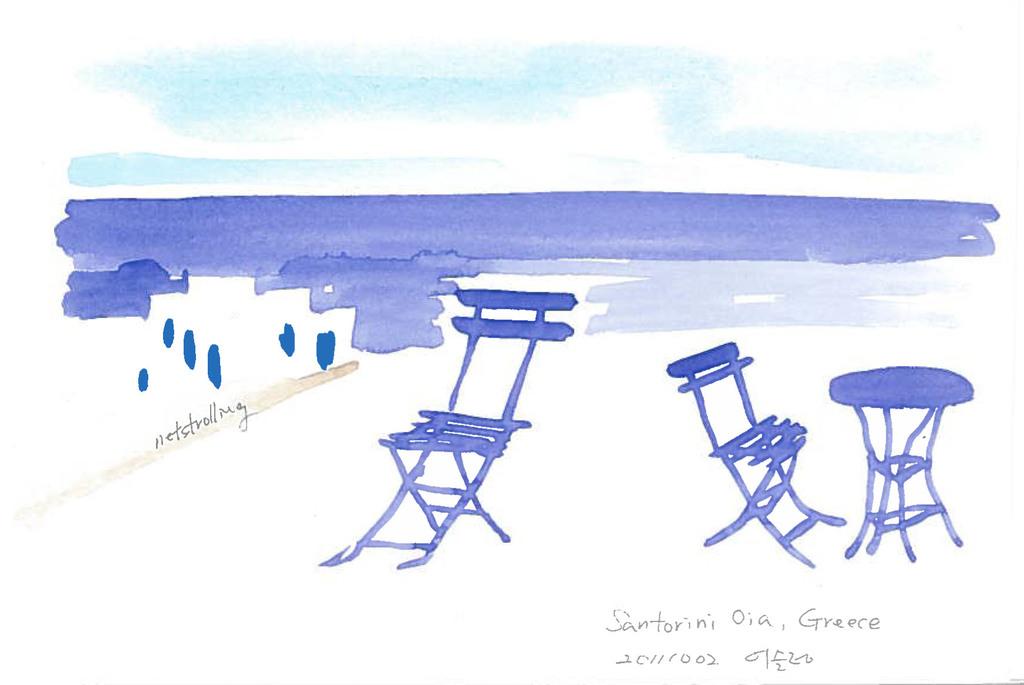 netstrolling
Santorini Oia, Greece
20111002